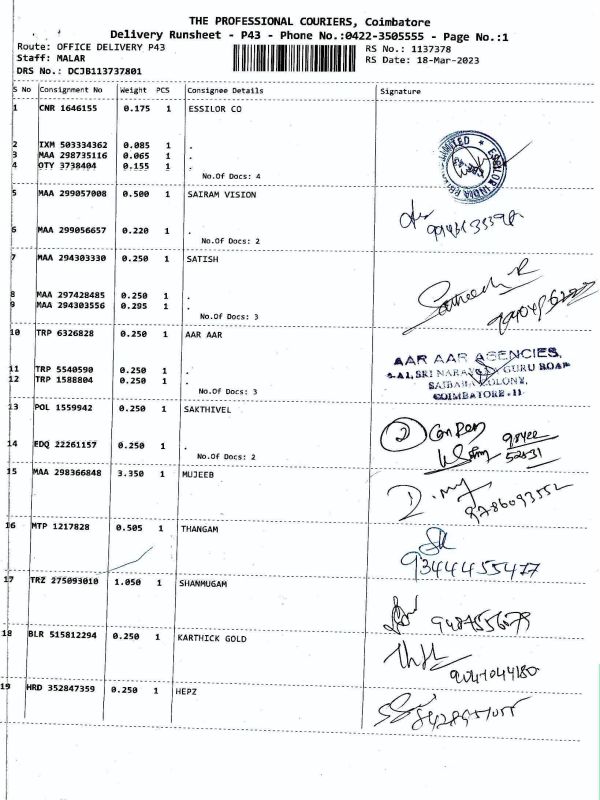 THE PROFESSIONAL COURIERS, Coimbatore
Delivery Runsheet - P43 - Phone No.:0422-3505555 - Page No.:1
Route: OFFICE DELIVERY P43
Staff: MALAR
DRS No.: DCJB113737801
RS No.: 1137378
RS Date: 18-Mar-2023
S No Consignment No Weight PCS Consignee Details Signature
1 CNR 1646155 0.175 1 ESSILOR CO
2 IXM 503334362 0.085 1 .
3 MAA 298735116 0.065 1 .
4 OTY 3738404 0.155 1 .
No.Of Docs: 4
5 MAA 299057008 0.500 1 SAIRAM VISION
6 MAA 299056657 0.220 1 .
No.Of Docs: 2
7 MAA 294303330 0.250 1 SATISH
8 MAA 297428485 0.250 1 .
9 MAA 294303556 0.295 1 .
No.Of Docs: 3
10 TRP 6326828 0.250 1 AAR AAR
AAR AAR AGENCIES,
GURU ROAD
SAIBABA COLONY,
COIMBATORE-11
11 TRP 5540590 0.250 1 .
12 TRP 1588804 0.250 1 .
No.Of Docs: 3
13 POL 1559942 0.250 1 SAKTHIVEL
2
98422
52831
14 EDQ 22261157 0.250 1 .
No.Of Docs: 2
15 MAA 298366848 3.350 1 MUJEEB
16 MTP 1217828 0.505 1 THANGAM
9344455477
17 TRZ 275093010 1.050 1 SHANMUGAM
18 BLR 515812294 0.250 1 KARTHICK GOLD
19 HRD 352847359 0.250 1 HEPZ